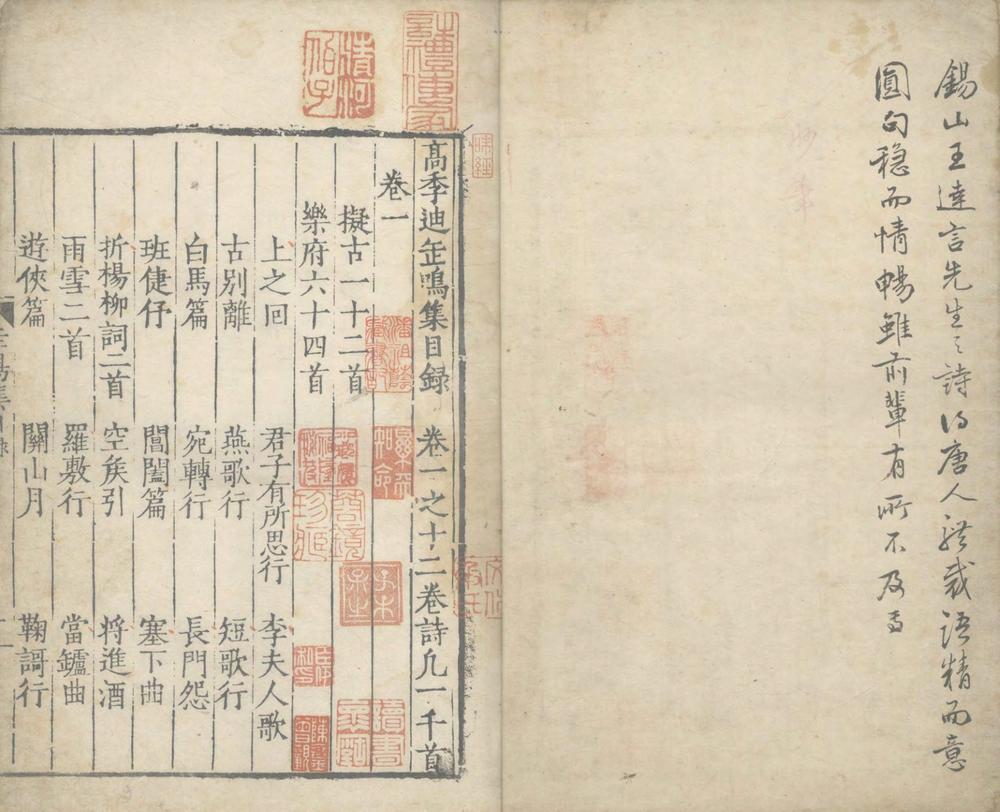 錫山王達言先生〻詩得唐人體裁語精而意
圓句穩而情暢雖前輩有所不及焉
髙季迪缶鳴集目録 卷一之十二卷詩凡一千首
卷一
擬古一十二首
樂府六十四首
上之回 君子有所思行 李夫人歌
古别離 燕歌行 短歌行
白馬篇 宛轉行 長門怨
班倢伃 閶闔篇 塞下曲
折楊柳詞二首 空矦引 将進酒
雨雪二首 羅敷行 當鑪曲
遊俠篇 關山月 鞠謌行